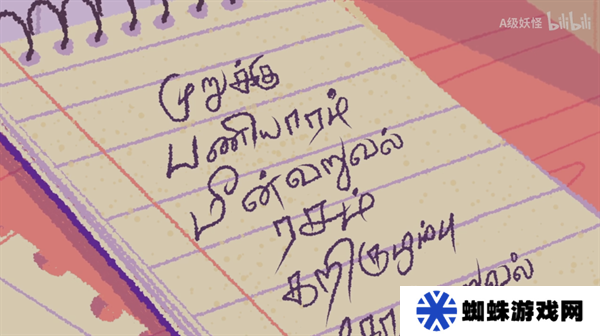 A级妖怪 bilibili
முறுக்கு
பணியாரம்
மீன்வறுவல்
ரசம்
கறிகுழம்பு
蜘蛛游戏网